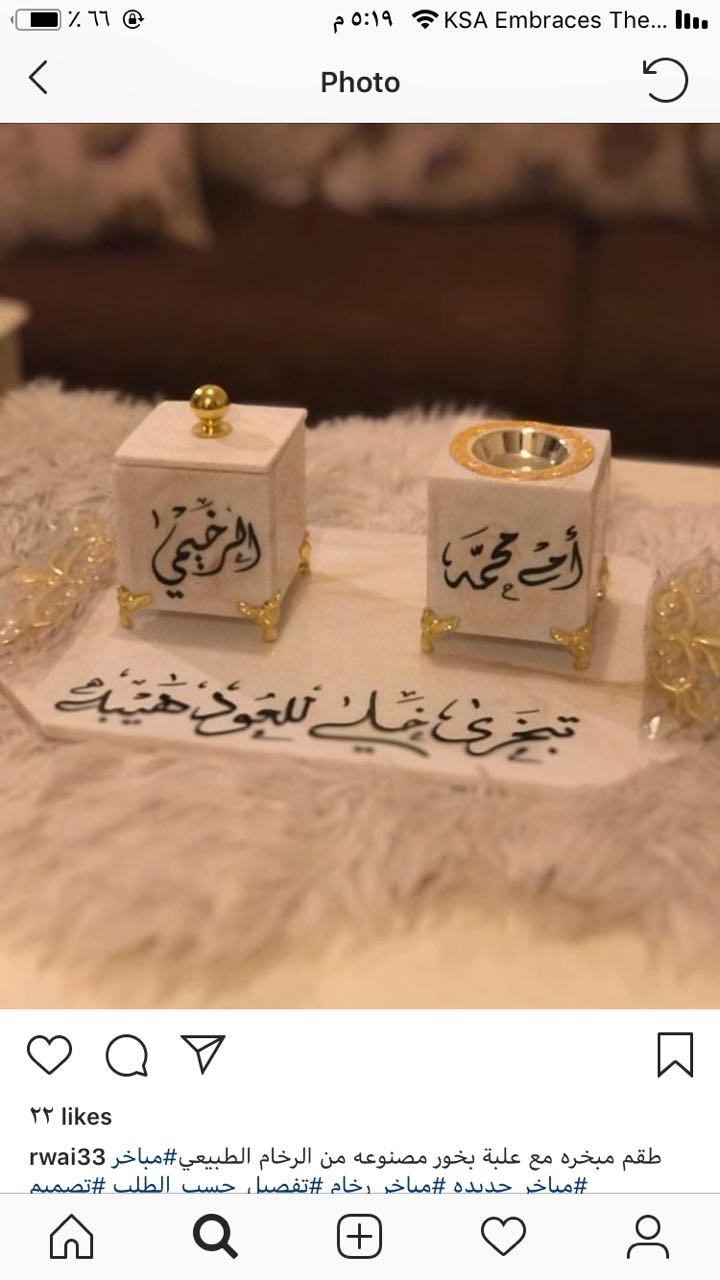 ٪ ٦٦
٥:١٩ م
KSA Embraces The...
Photo
الرخيمي
أم محمد
تبخري خلي للعود هيبه
٢٢ likes
rwai33 طقم مبخره مع علبة بخور مصنوعه من الرخام الطبيعي#مباخر
#مباخر_جديده #مباخر_رخام #تفصيل_حسب_الطلب #تصميم